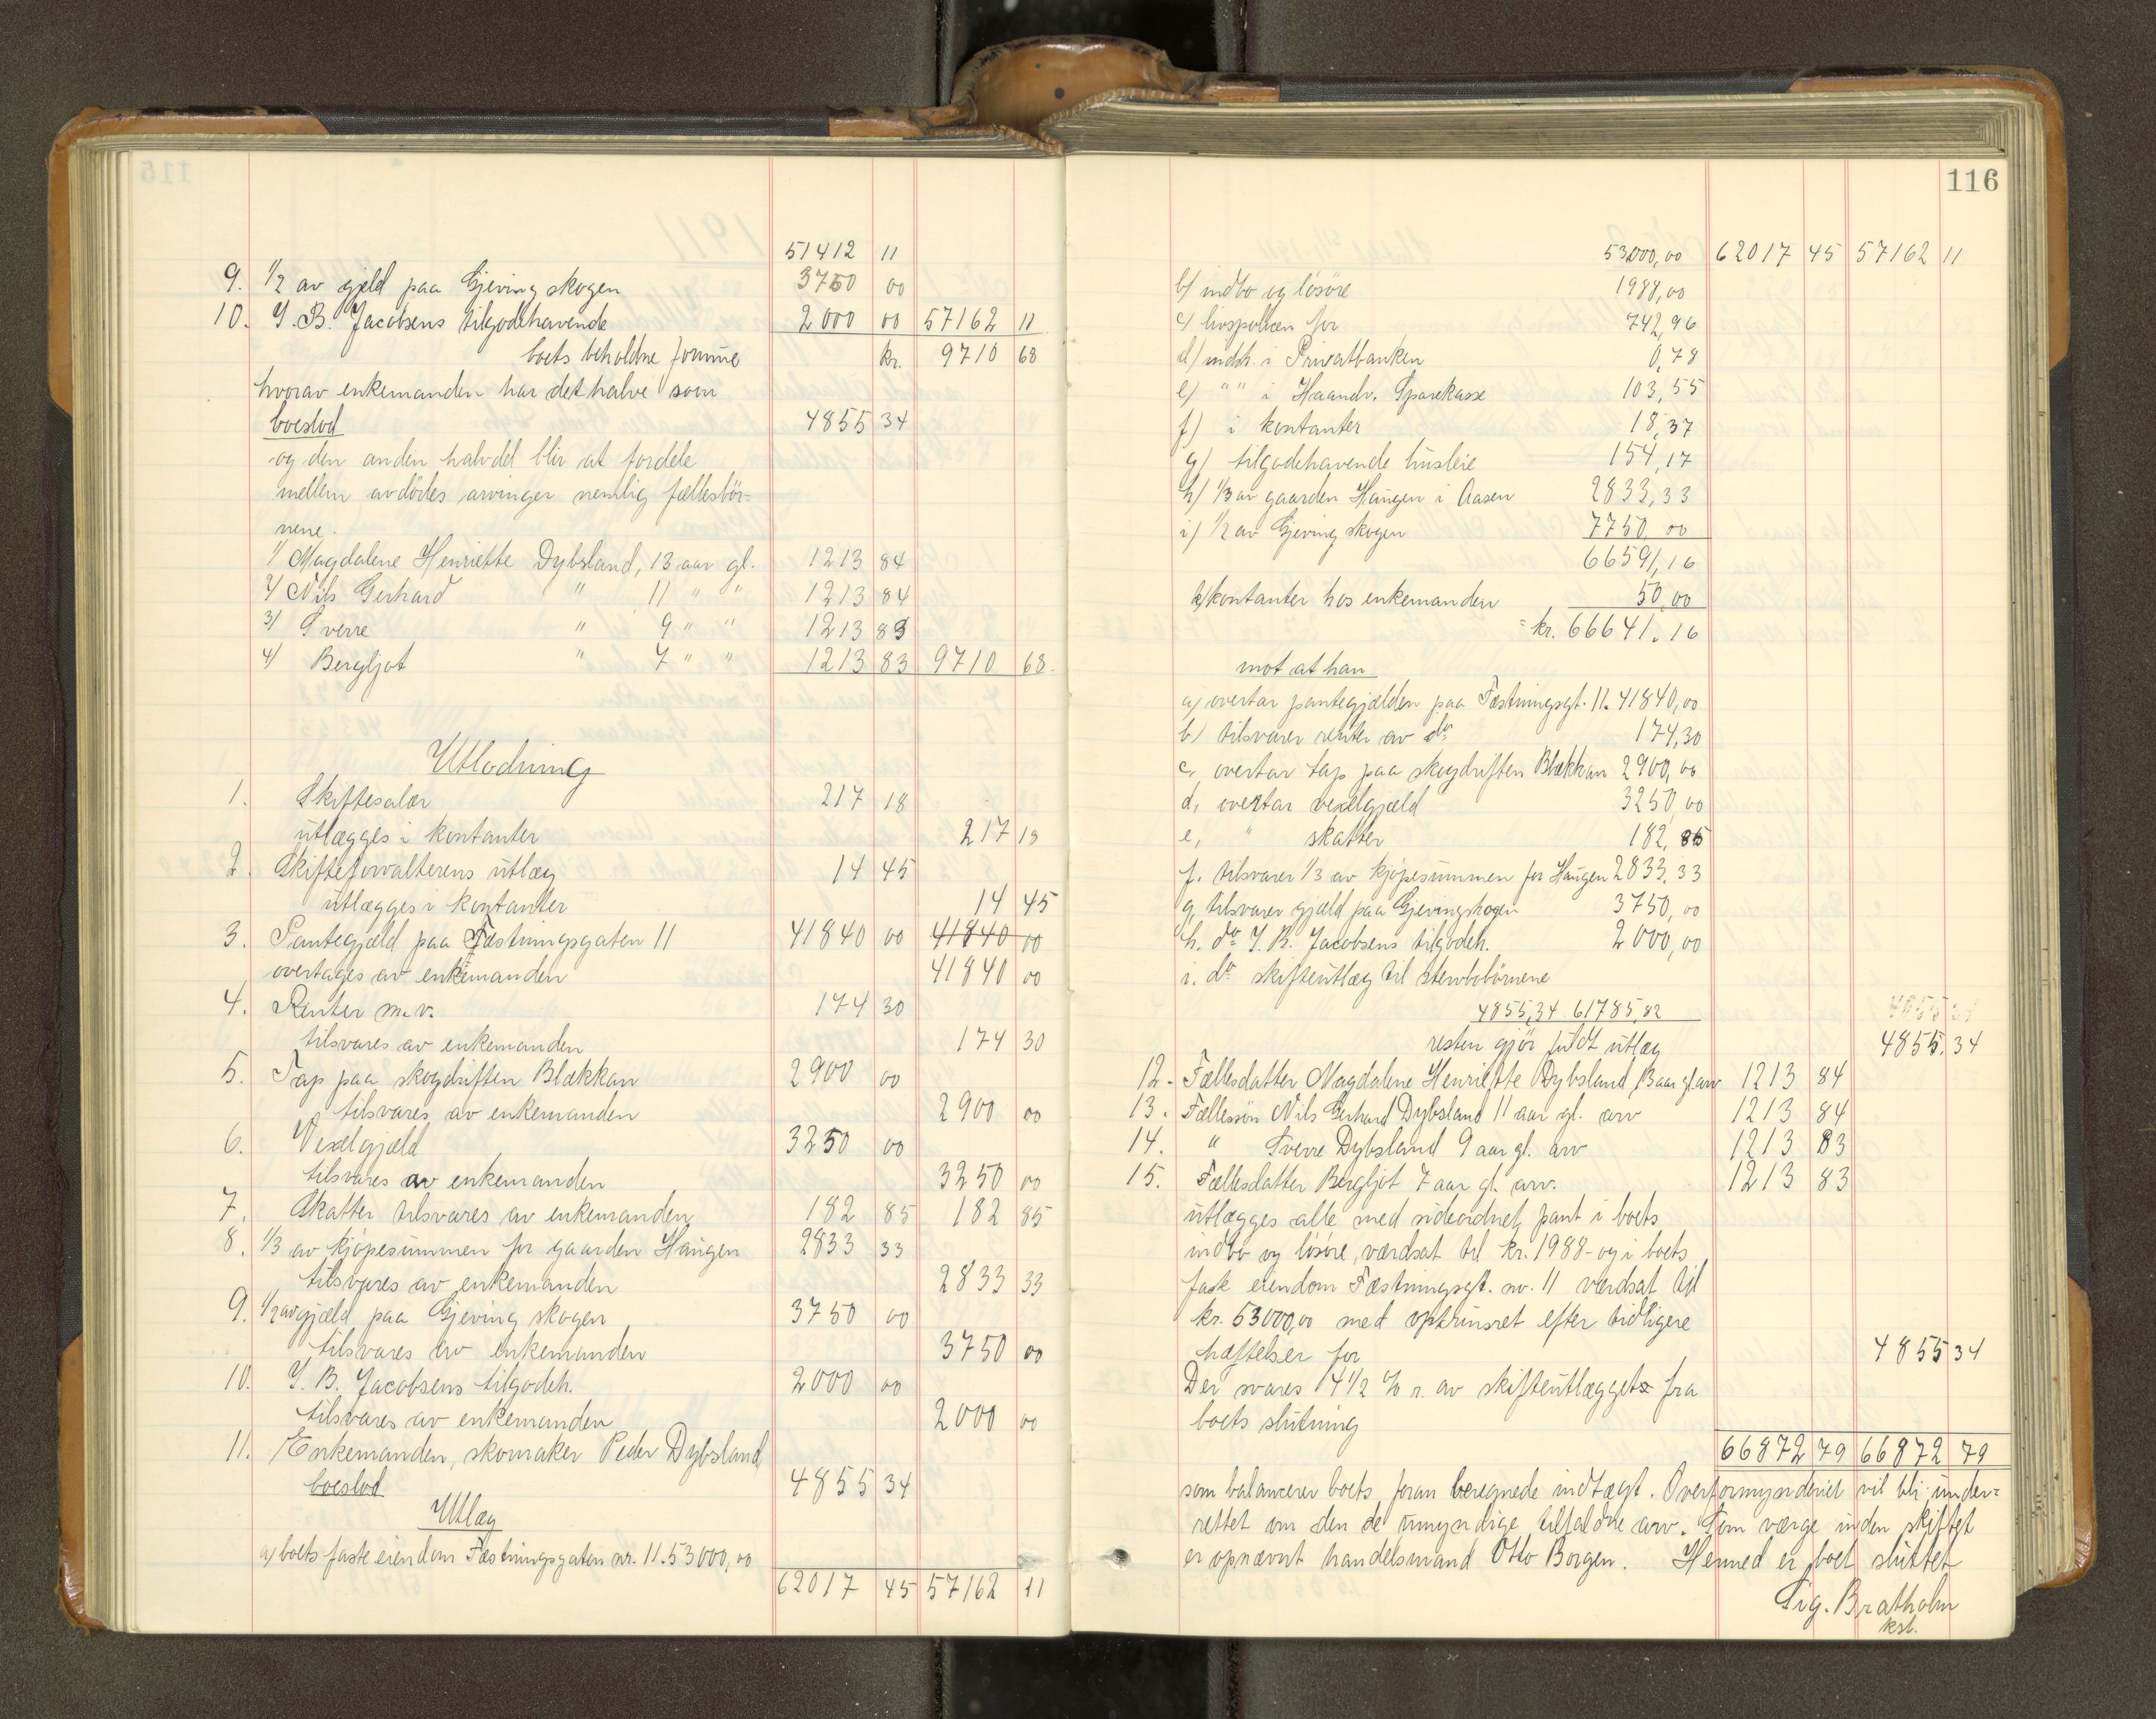 51412 11
9. 1/2 av gjeld paa Gjeving skogen 3750 00
10. J. B. Jacobsens tilgodehavende 2000 00 57162 11
boets beholdne formue kr. 9710 68
hvorav enkemanden har det halve som
boeslod 4855 34
og den anden halvdel blir at fordele
mellem avdødes arvinger nemlig fællesbør=
nene.
1/ Magdalene Henriette Dybsland, 13 aar gl. 1213 84
2/ Nils Gerhard " 11 " " 1213 84
3/ Sverre " 9 " " 1213 83
4/ Bergljot " 7 " " 1213 83 9710 68.
Utlodning
1. Skiftesalær 217 18
utlægges i kontanter 217 18
2. Skifteforvalterens utlæg 14 45
utlægges i kontanter 14 45
3. Pantegjæld paa Fæstningsgaten 11 41840 00 41840 00
overtages av enkemanden 41840 00
4. Renter m.v. 174 30
tilsvares av enkemanden 174 30
5. Tap paa skogdriften Blækkan 2900 00
tilsvares av enkemanden 2900 00
6. Vexelgjæld 3250 00
tilsvares av enkemanden 3250 00
7. Skatter tilsvares av enkemanden 182 85 182 85
8. 1/3 av kjøpesummen for gaarden Haugen 2833 33
tilsvares av enkemanden 2833 33
9. 1/2 av gjæld paa Gjeving skogen 3750 00
tilsvares av enkemanden 3750 00
10. J. B. Jacobsens tilgodeh. 2000 00
tilsvares av enkemanden 2000 00
11. Enkemanden, skomaker Peder Dybsland
boeslod 4855 34
Utlæg
a) boets faste eiendom Fæstningsgaten nr. 11. 53000,00
62017 45 57162 11
116
53000,00 62017 45 57162 11
b/ indbo og løsøre 1988,00
c/ livspolicen for 742,96
d/ indeh. i Privatbanken 0,78
e) " " i Haandv. Sparekasse 103,55
f) i kontanter 18,37
g) tilgodehavende husleie 154,17
h/ 1/3 av gaarden Haugen i Aasen 2833,33
i) 1/2 av Gjeving skogen 7750,00
66591,16
k/ kontanter hos enkemanden 50,00
= kr. 66641.16
mot at han
a) overtar pantegjælden paa Fæstningsgt. 11. 41840,00
b) tilsvarer renter av do 174,30
c, overtar tap paa skogdriften Blækkan 2900,00
d, overtar vexelgjæld 3250,00
e, " skatter 182,85
f. tilsvarer 1/3 av kjøpesummen for Haugen 2833.33
g, tilsvarer gjæld paa Gjevingskogen 3750,00
h. do J. B. Jacobsens tilgodeh. 2000,00
i. do skifteutlæg til stervbobørnene
4855,34 61785,82
resten gjør fuldt utlæg 4855.34
12. Fællesdatter Magdalene Henriette Dybsland 13 aar gl. arv 1213 84
13. Fællessøn Nils Gerhard Dybsland 11 aar gl. arv 1213 84
14. " Sverre Dybsland 9 aar gl. arv 1213 83
15. Fællesdatter Bergljot 7 aar gl. arv. 1213 83
utlægges alle med sideordnet pant i boets
indbo og løsøre, værdsat til kr. 1988- og i boets
faste eiendom Fæstningsgt. nr. 11 værdsat til
kr. 53000,00 med optrinsret efter tidligere
hæftelser for 4855 34
Der svares 4 1/2 % r. av skifteutlægget fra
boets slutning
66872 79 66872 79
som balancerer boets foran beregnede indtægt. Overformynderiet vil bli under=
rettet om den de umyndige tilfaldne arv. Som værge inden skiftet
er opnævnt handelsmand Otto Borgen. Hermed er boet sluttet
Sig. Bratholm
kst.